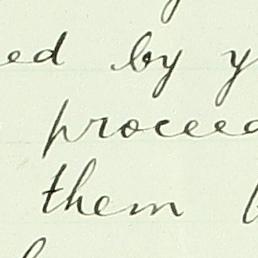 ed by y
proceed
them